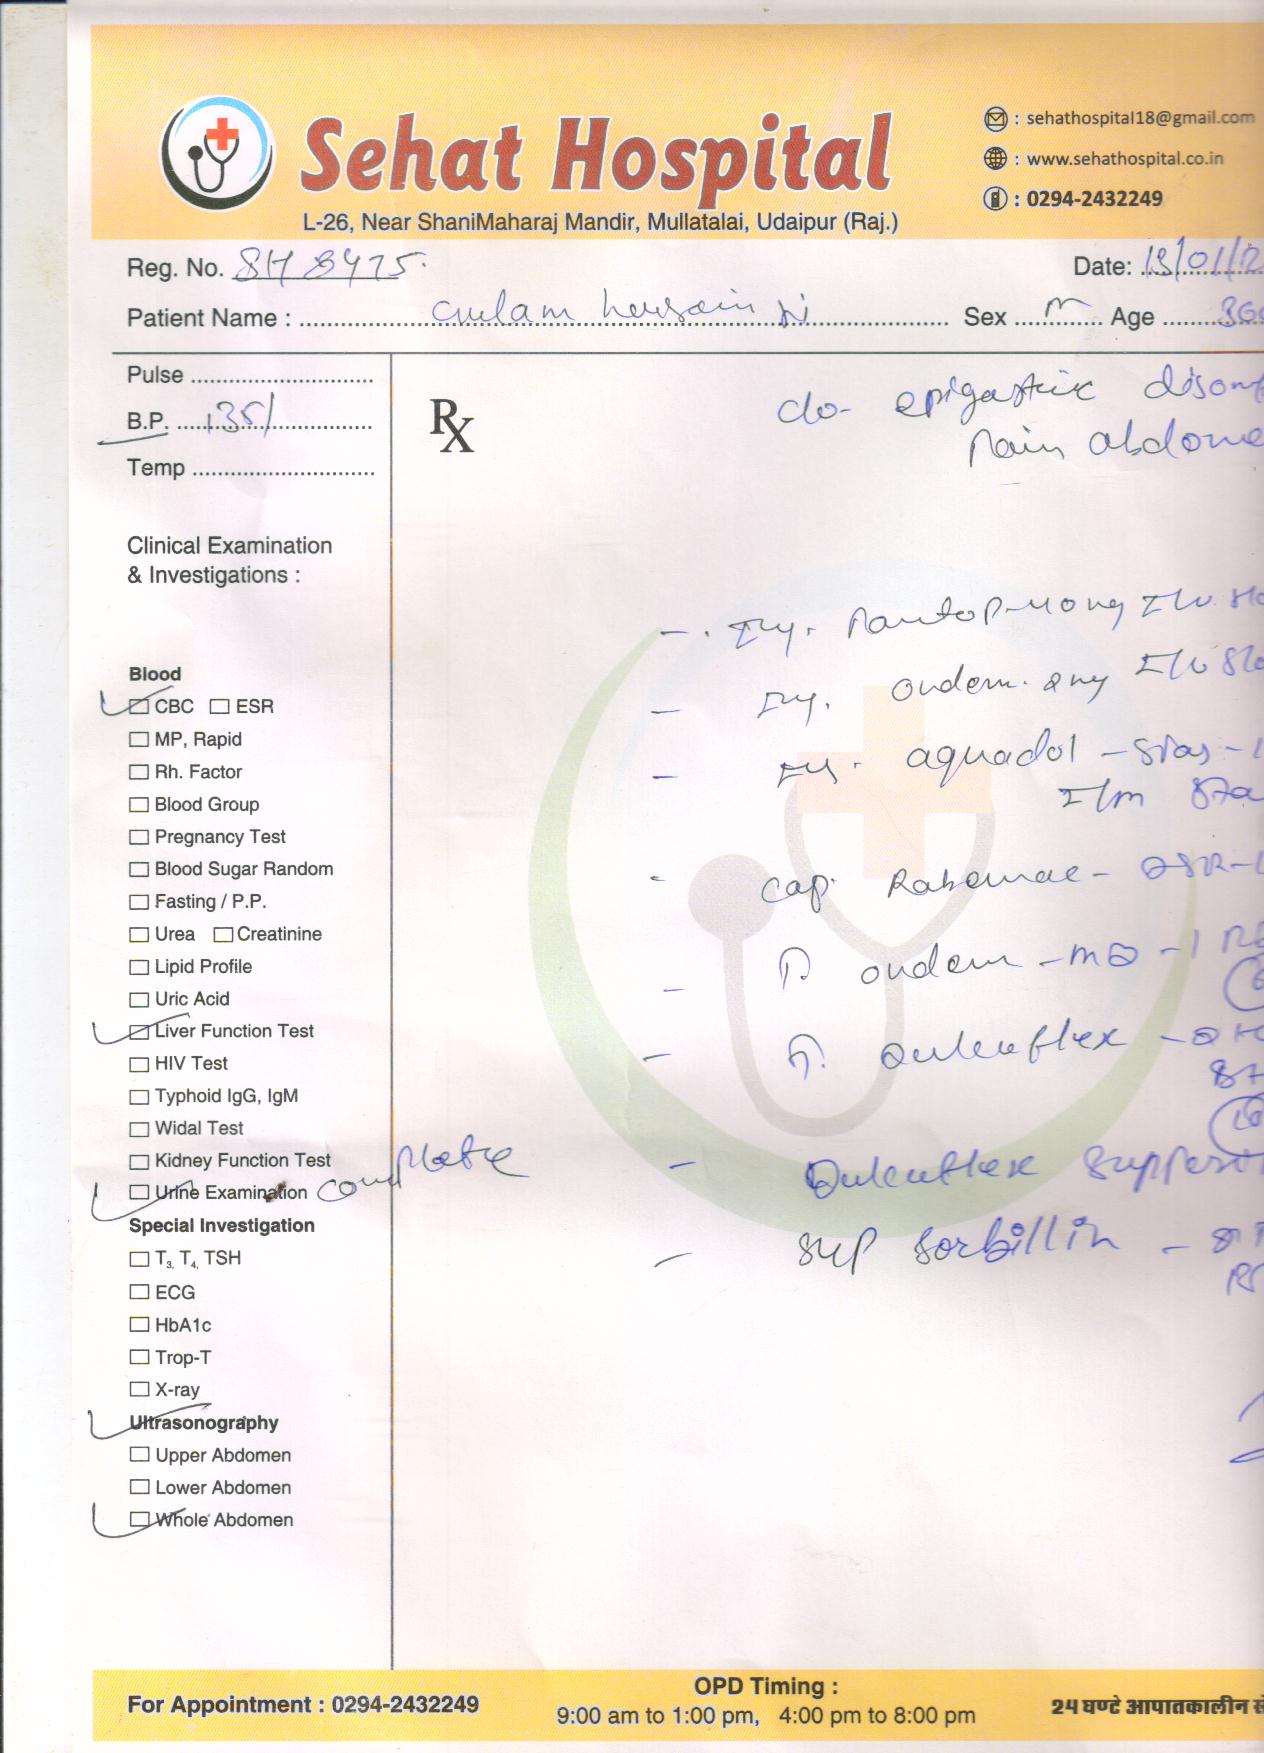 Sehat Hospital
L-26, Near ShaniMaharaj Mandir, Mullatalai, Udaipur (Raj.)
: sehathospital18@gmail.com
: www.sehathospital.co.in
: 0294-2432249
Reg. No. SH 8475
Date: 13/01/2
Patient Name : Gulam hussain Ji Sex M Age 36
Pulse
B.P. 135/
Temp
Rx
c/o- epigastric discomf
Pain abdome
Clinical Examination
& Investigations :
Blood
CBC ESR
MP, Rapid
Rh. Factor
Blood Group
Pregnancy Test
Blood Sugar Random
Fasting / P.P.
Urea Creatinine
Lipid Profile
Uric Acid
Liver Function Test
HIV Test
Typhoid IgG, IgM
Widal Test
Kidney Function Test
Urine Examination complete
Special Investigation
T3, T4, TSH
ECG
HbA1c
Trop-T
X-ray
Ultrasonography
Upper Abdomen
Lower Abdomen
Whole Abdomen
- Inj. Pantop-40mg I/V
- Inj. ondem 2mg I/V
- Inj. aquadol - spas - 1
I/m Sta
- Cap. - DSR - 1
- T. ondem - MD - 1
- T. Dulcoflex - 2
- Dulcoflex Supposi
- Syp Sorbillin -
For Appointment : 0294-2432249
OPD Timing :
9:00 am to 1:00 pm, 4:00 pm to 8:00 pm
24 घण्टे आपातकालीन से